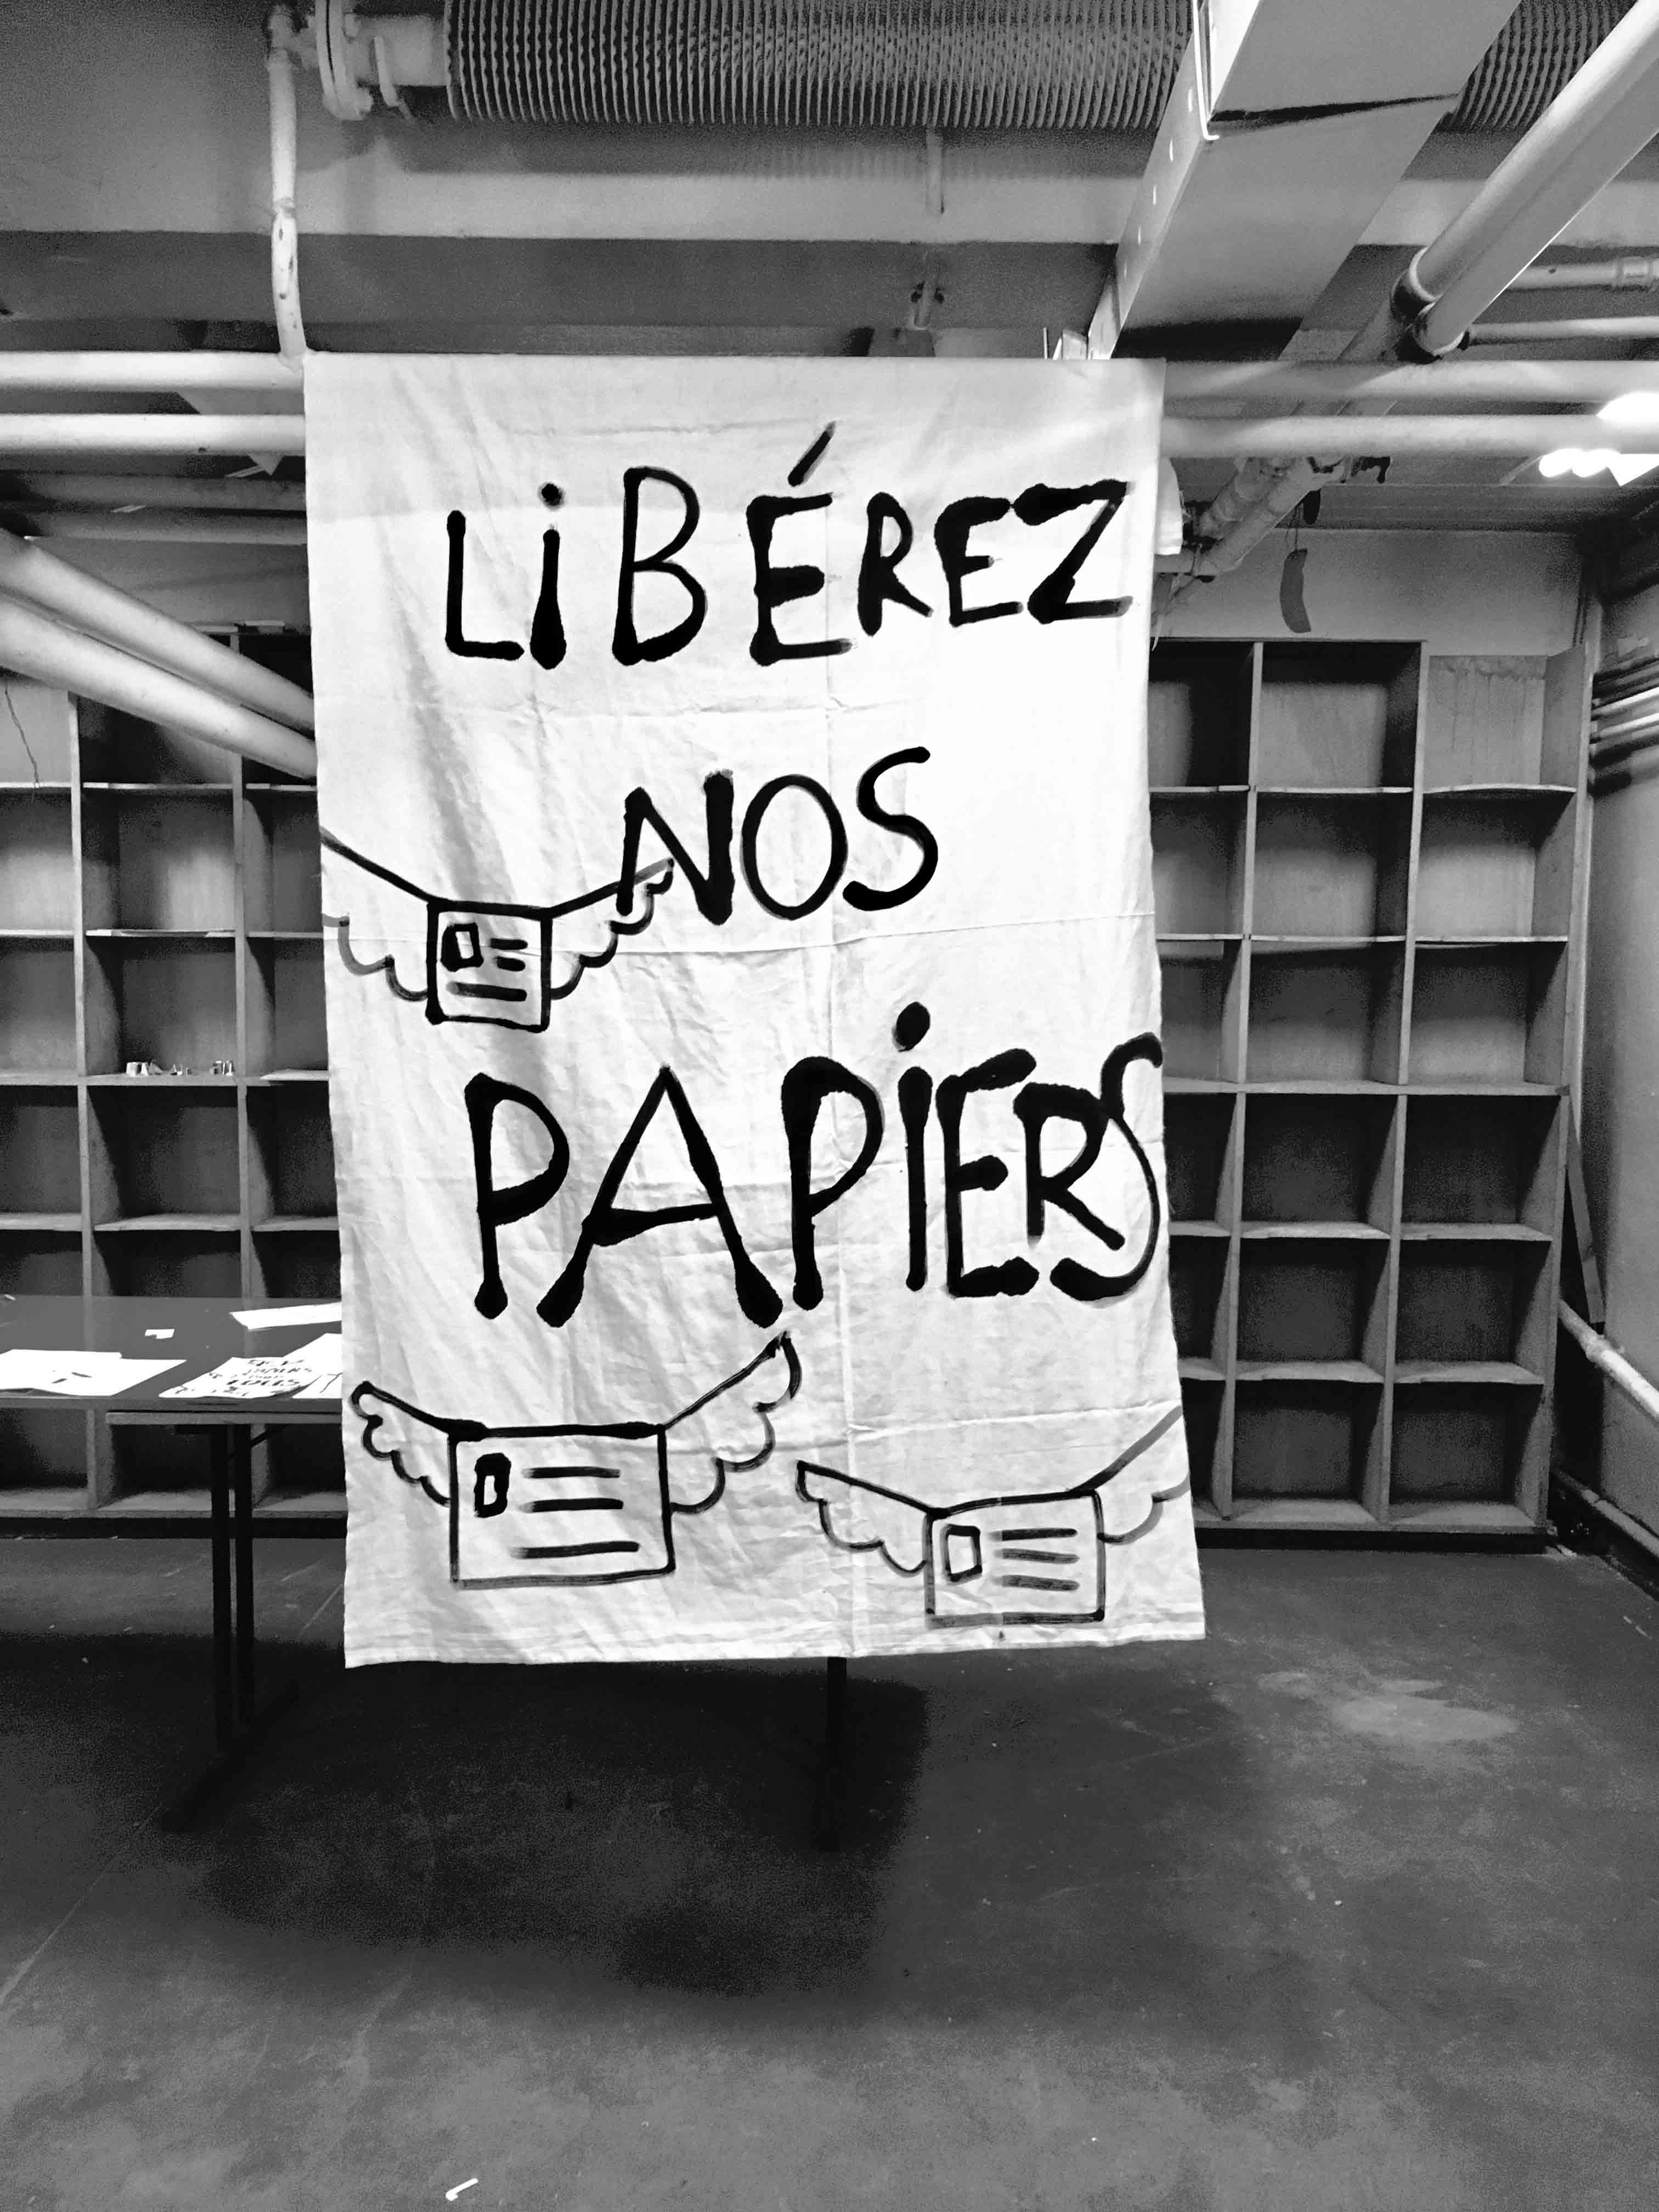 LiBÉREZ
NOS
PAPiERS